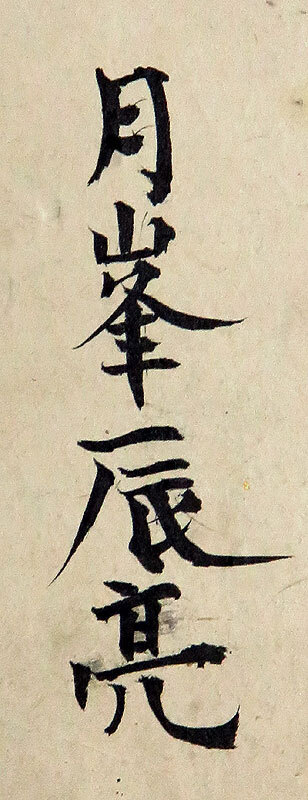 月峯辰亮